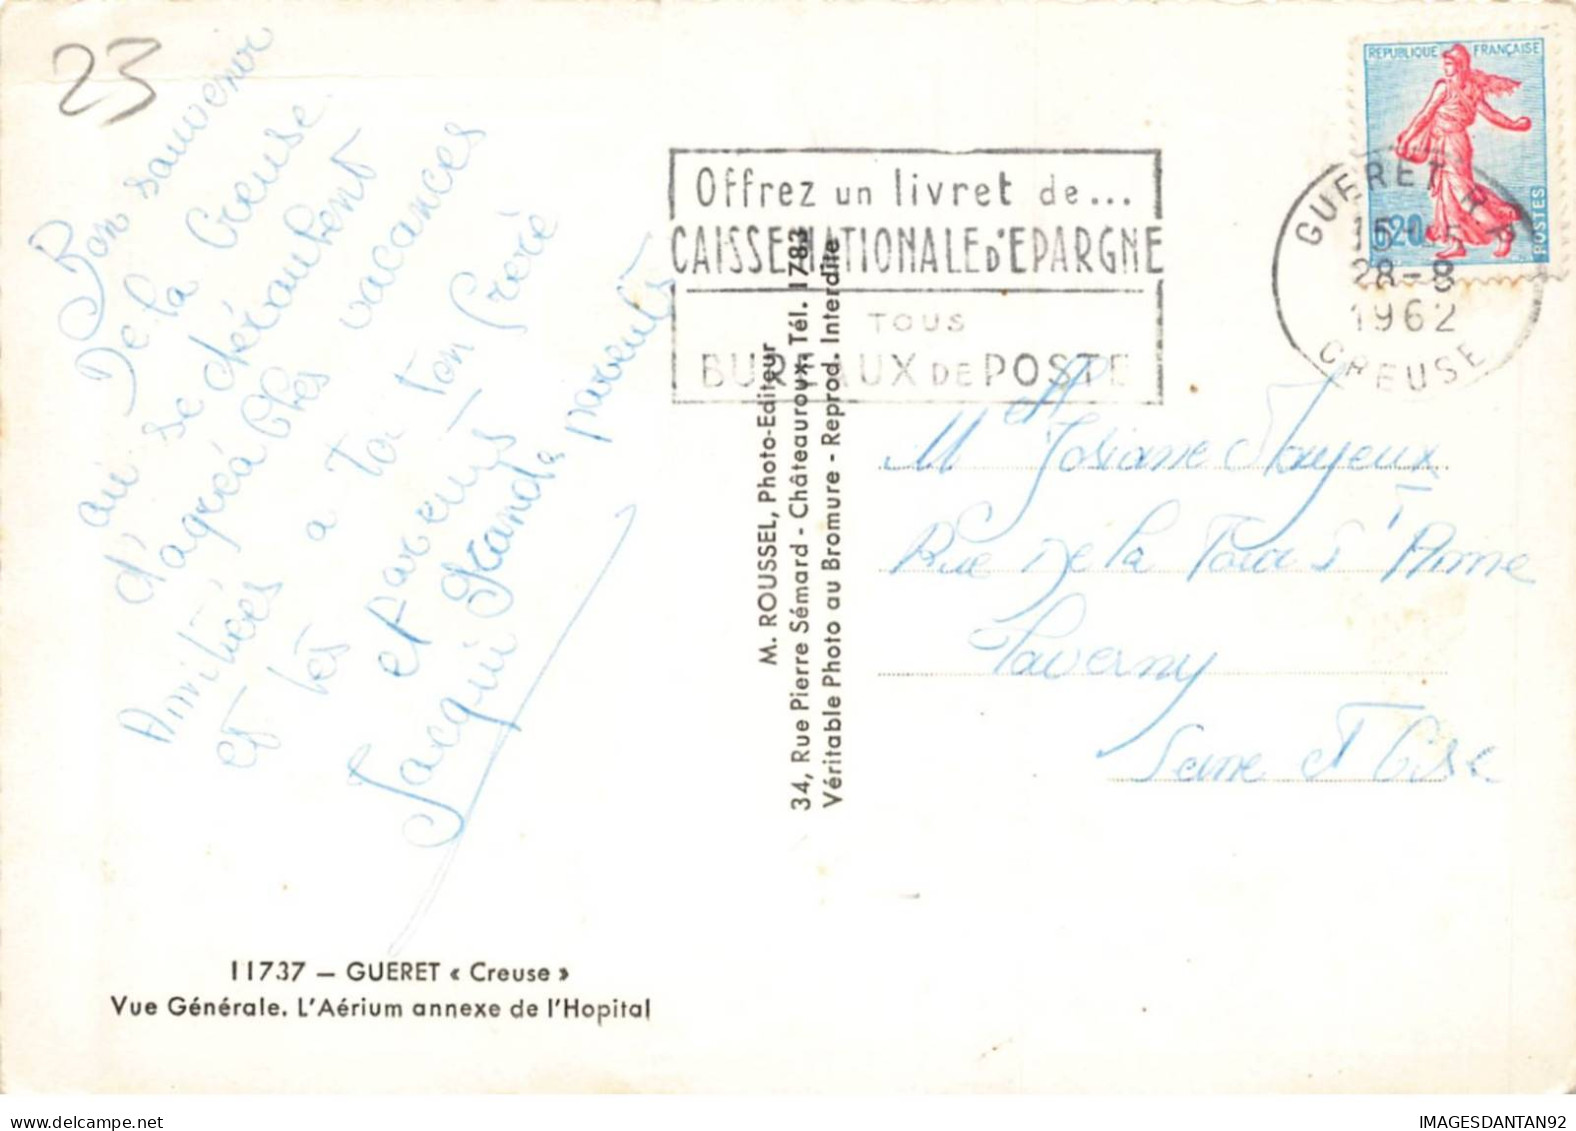 23
Bon souvenir
De la Creuse
au se déroulent
d'agréables vacances
Amitiées a toi ton frère
et tes parents
et grands parents
Jacqui
11737 — GUERET « Creuse »
Vue Générale. L'Aérium annexe de l'Hopital
M. ROUSSEL, Photo-Editeur
34, Rue Pierre Sémard - Châteauroux - Tél. 1783
Véritable Photo au Bromure - Reprod. Interdite
Offrez un livret de...
CAISSE NATIONALE D'EPARGNE
TOUS
BUREAUX DE POSTE
REPUBLIQUE FRANÇAISE
0,20
POSTES
GUERET R.P.
28-8
1962
CREUSE
Melle Josiane
Rue De la Tour
Taverny
Seine et Oise
IMAGESDANTAN92